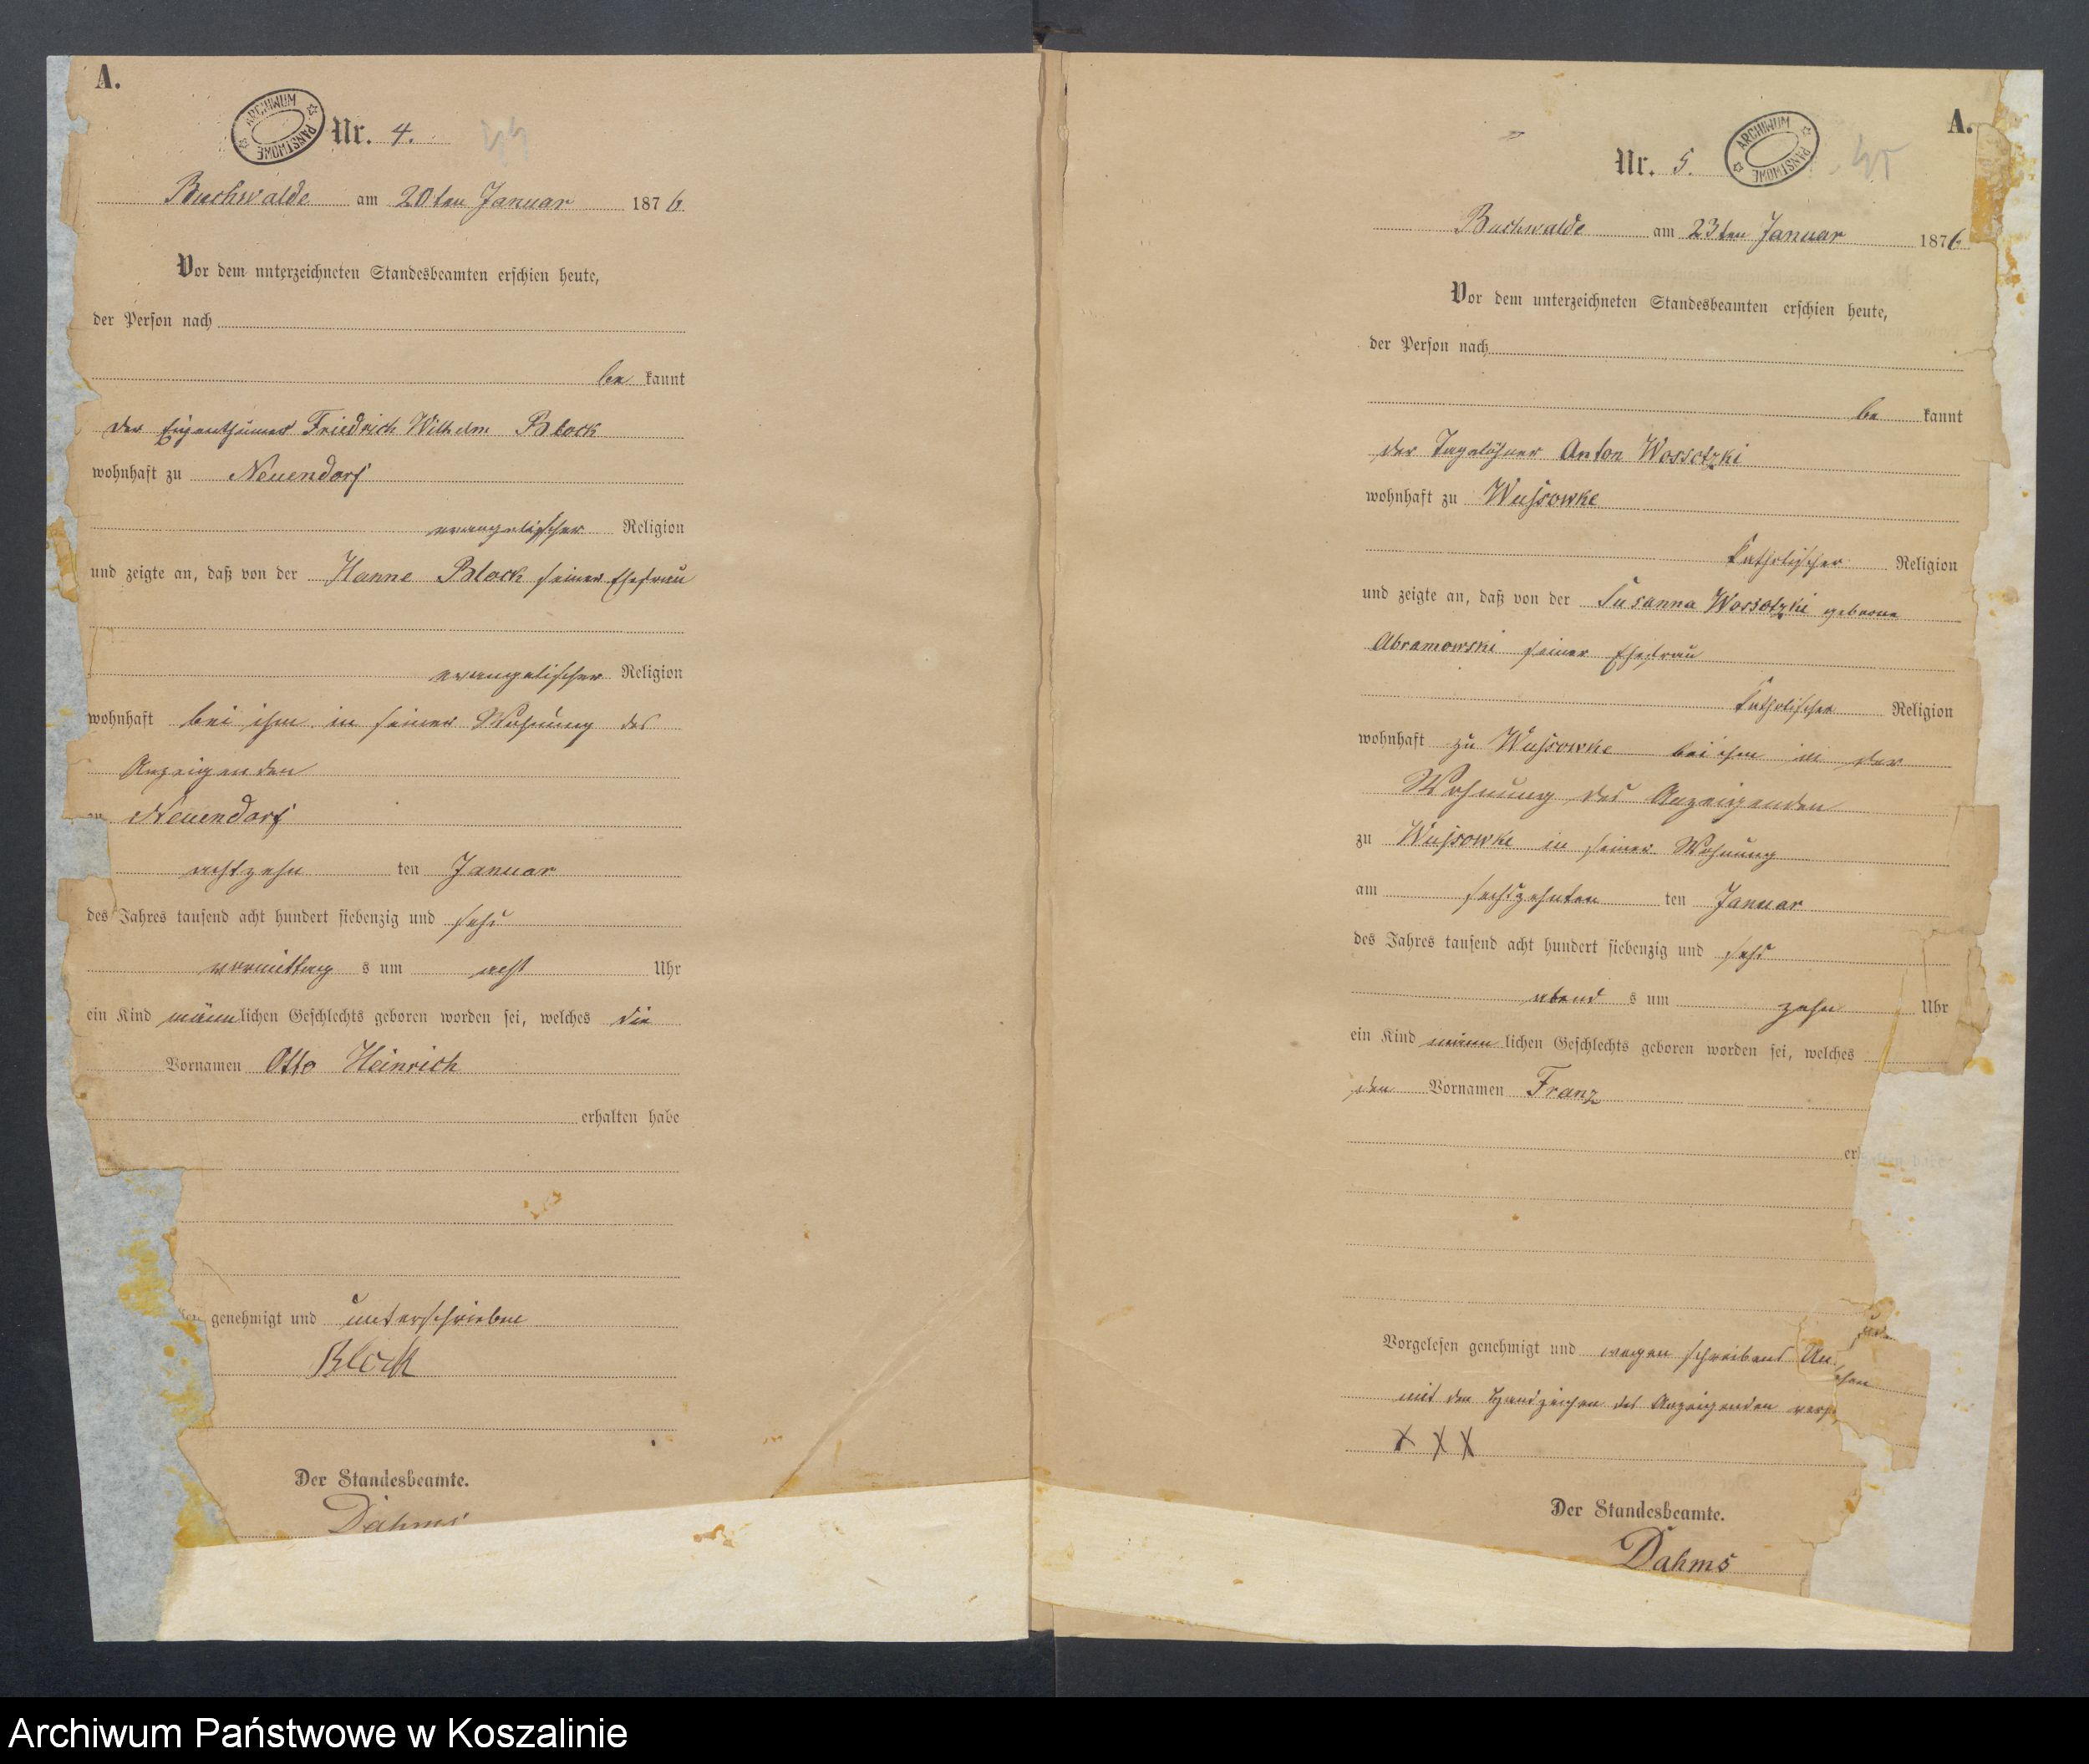 A.
ARCHIWUM PAŃSTWOWE
Nr. 4.
Buchwalde am 20ten Januar 1876
Vor dem unterzeichneten Standesbeamten erschien heute,
der Person nach
be kannt
der Eigenthümer Friedrich Wilhelm Block
wohnhaft zu Neuendorf
evangelischer Religion
und zeigte an, daß von der Hanne Block seiner Ehefrau
evangelischer Religion
wohnhaft bei ihm in seiner Wohnung des
Anzeigenden
zu Neuendorf
achtzehn ten Januar
des Jahres tausend acht hundert siebenzig und sechs
vormittag s um acht Uhr
ein Kind männlichen Geschlechts geboren worden sei, welches die
Vornamen Otto Heinrich
erhalten habe
genehmigt und unterschrieben
Block
Der Standesbeamte.
Dahms
A.
Nr. 5.
ARCHIWUM PAŃSTWOWE
45
Buchwalde am 23ten Januar 1876
Vor dem unterzeichneten Standesbeamten erschien heute,
der Person nach
be kannt
der Tagelöhner Anton Wossotzki
wohnhaft zu Wussowke
katholischer Religion
und zeigte an, daß von der Susanna Wossotzki geborne
Abramowski seiner Ehefrau
katholischer Religion
wohnhaft zu Wussowke bei ihm in der
Wohnung des Anzeigenden
zu Wussowke in seiner Wohnung
am sechszehnten ten Januar
des Jahres tausend acht hundert siebenzig und sechs
abend s um zehn Uhr
ein Kind männ lichen Geschlechts geboren worden sei, welches
den Vornamen Franz
erhalten habe
Vorgelesen genehmigt und wegen schreibens Un
mit den Handzeichen des Anzeigenden vers
XXX
Der Standesbeamte.
Dahms
Archiwum Państwowe w Koszalinie